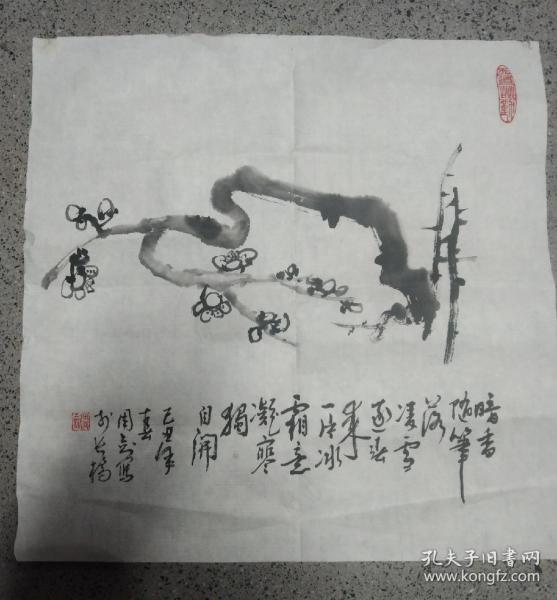 暗香
随笔
落
凌雪
逐春
来
一片冰
霜意
凝寒
独
自開
己丑年
春
周
于长桥
孔夫子旧书网
www.kongfz.com